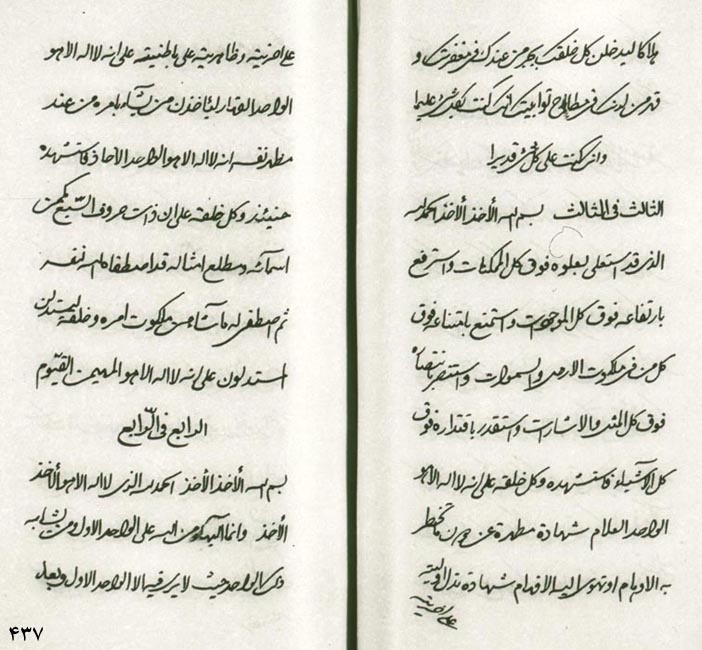 هلاکا لیدخلن کل خلقک بخیر من عندک فی مغفرتک و
قدر من لدنک فی مطالع ثوابیتک انک کنت بکل شیء علیما
وانک کنت علی کل شیء قدیرا
الثالث فی الثالث بسم الله الأخذ الأخذ الحمد لله
الذی قد استعلی بعلوه فوق کل الممکنات واسترفع
بارتفاعه فوق کل الموجودات واستمنع بامتناعه فوق
کل من فی ملکوت الارض والسموات واستنصر بانتصاره
فوق کل المثل والاشارات واستقدر باقتداره فوق
کل الاشیاء فاستشهده وکل خلقه علی انه لا اله الا هو
الواحد العلام شهادة مطهرة عن
به الاوهام او تهوی الیه الافهام شهادة تدل اولیته
علی اخریته
علی اخریته وظاهریته علی باطنیته علی انه لا اله الا هو
الواحد القدار لیأخذن من یشاء بامره من عند
مظهر نفسه انه لا اله الا هو الواحد الأخاذ فاستشهده
حینئذ وکل خلقه علی ان ذات حروف السبع مکمن
اسمائه ومطلع امثاله قد اصطفاه الله لنفسه
ثم اصطفی له ما شاء من ملکوت امره وخلقه
استدلون علی انه لا اله الا هو المهیمن القیوم
الرابع فی الرابع
بسم الله الأخذ الأخذ الحمد لله الذی لا اله الا هو الأخذ
الأخذ وانما البهاء من الله علی الواحد الاول ومن یشابه
ذلک الواحد حیث لا یری فیه الا الواحد الاول وبعد
۴۳۷